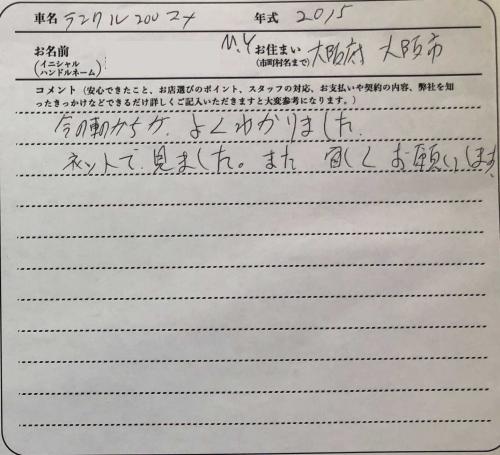 車名 ランクル200 年式 2015
お名前 M.Y お住まい 大阪府 大阪市
(イニシャル (市町村名まで)
ハンドルネーム)
コメント(安心できたこと、お店選びのポイント、スタッフの対応、お支払いや契約の内容、弊社を知
ったきっかけなどできるだけ詳しくご記入いただきますと大変参考になります。)
今の車の よくわかりました
ネットで見ました。また 宜しくお願いします